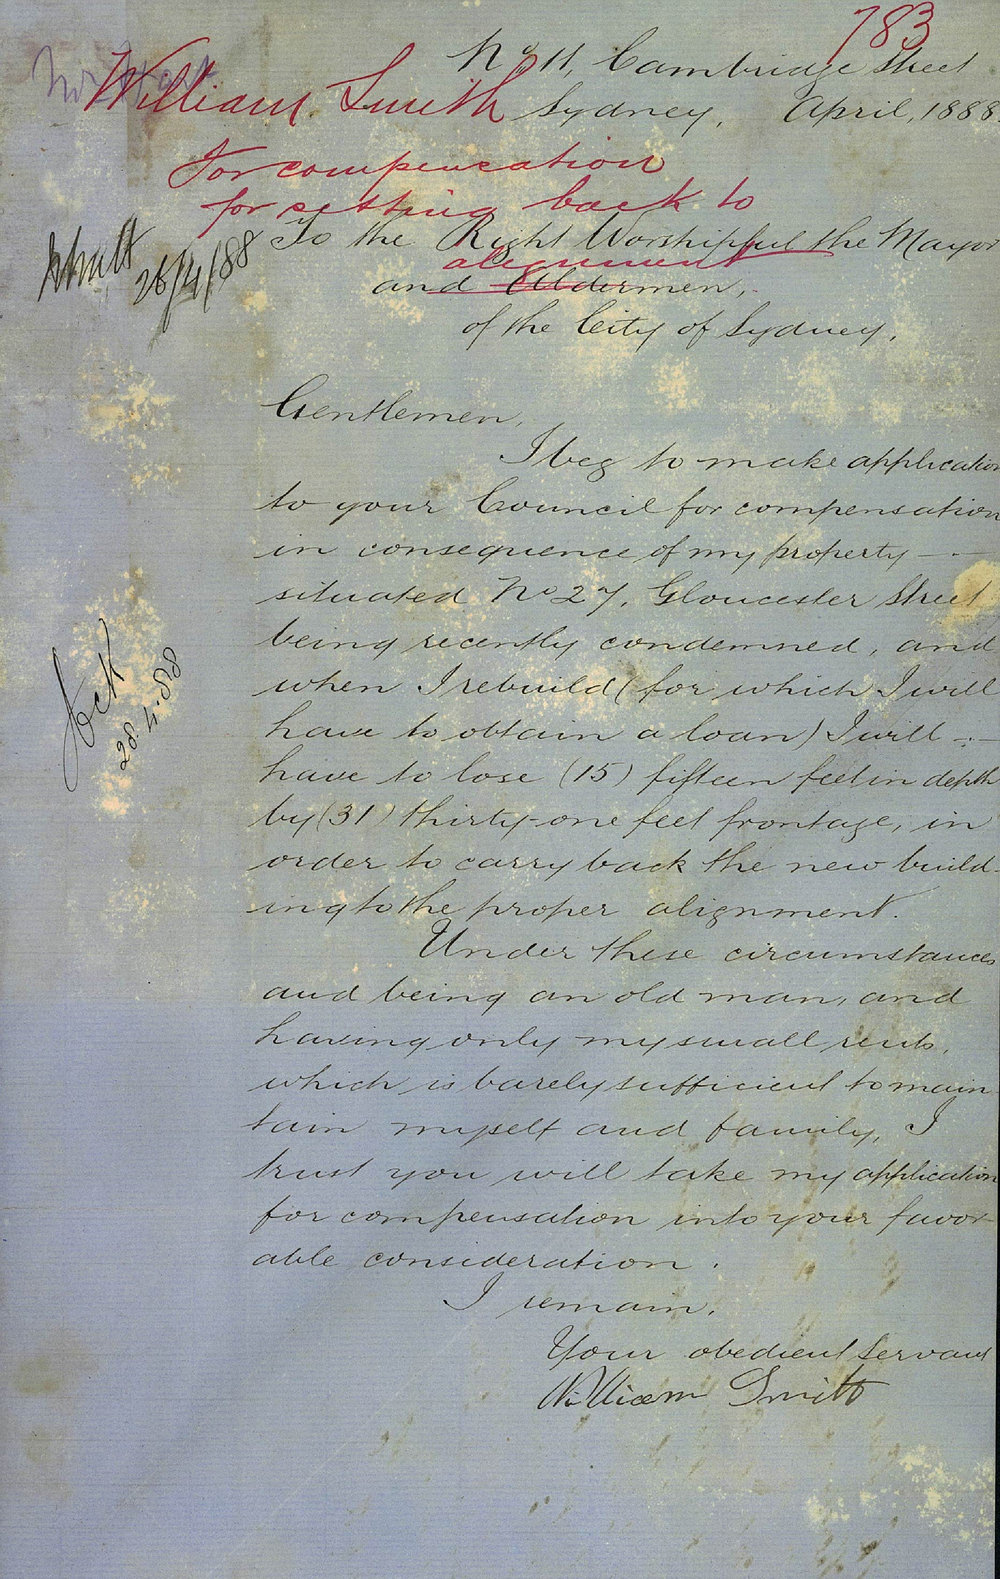 783
No 11, Cambridge Street
William Smith
Sydney, April, 1888.
For compensation
for setting back to
alignment
To the Right Worshipful the Mayor
and Aldermen,
of the City of Sydney,
26/4/88
Gentlemen,
I beg to make application
to your Council for compensation
in consequence of my property —
situated No 27, Gloucester Street
being recently condemned, and
when I rebuild (for which I will
have to obtain a loan) I will —
have to lose (15) fifteen feet in depth
by (31) thirty-one feet frontage, in
order to carry back the new build-
ing to the proper alignment.
28.4.88
Under these circumstances
and being an old man, and
having only my small rents,
which is barely sufficient to main
tain myself and family, I
trust you will take my application
for compensation into your favor-
able consideration.
I remain,
Your obedient Servant
William Smith